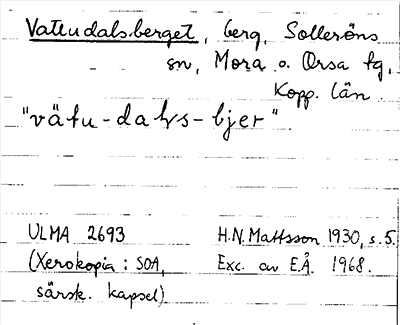 Vattudalsberget, berg, Solleröns
sn, Mora o. Orsa tg,
Kopp. län
"vätu-dals-bjer"
ULMA 2693 H.N. Mattsson 1930, s. 5.
(Xerokopia : SOA, Exc. av E.Å. 1968.
särsk. kapsel)